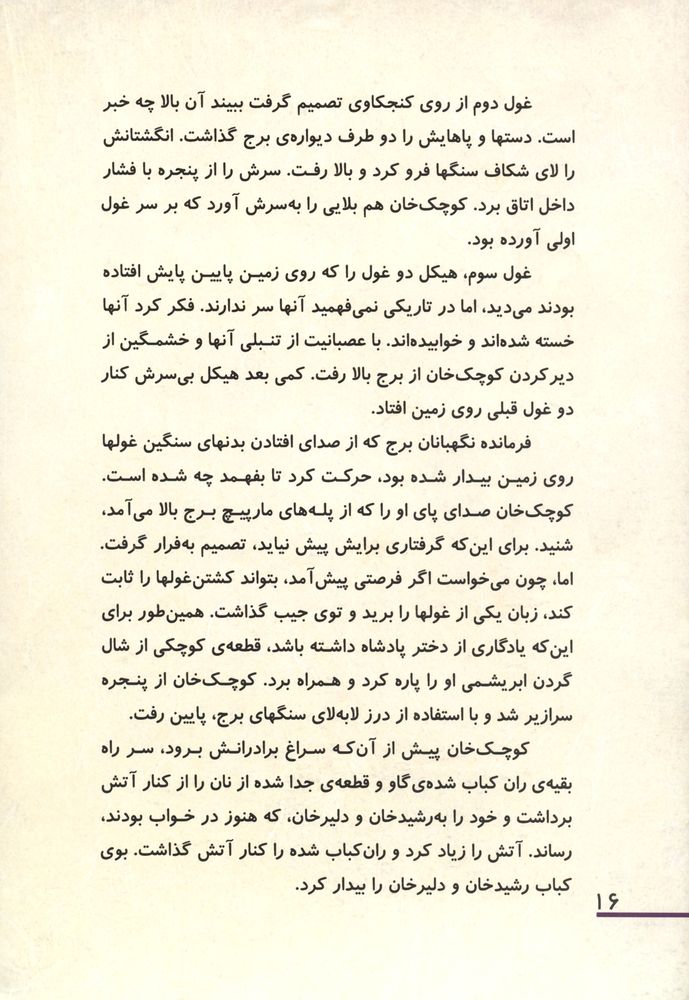 غول دوم از روی کنجکاوی تصمیم گرفت ببیند آن بالا چه خبر
است. دستها و پاهایش را دو طرف دیواره‌ی برج گذاشت. انگشتانش
را لای شکاف سنگها فرو کرد و بالا رفـت. سرش را از پنجره با فشار
داخل اتاق برد. کوچک‌خان هم بلایی را به‌سرش آورد که بر سر غول
اولی آورده بود.
غول سوم، هیکل دو غول را که روی زمیـن پاییـن پایش افتاده
بودند می‌دید، اما در تاریکی نمی‌فهمید آنها سر ندارند. فکر کرد آنها
خسته شده‌اند و خوابیده‌اند. با عصبانیت از تنـبلی آنها و خشمـگین از
دیرکردن کوچک‌خان از برج بالا رفت. کمی بعد هیکل بی‌سرش کنار
دو غول قبلی روی زمین افتاد.
فرمانده نگهبانان برج که از صدای افتادن بدنهای سنگین غولها
روی زمیـن بیـدار شـده بود، حرکت کرد تا بفهمد چه شـده اسـت.
کوچک‌خان صـدای پای او را که از پلـه‌های مارپیـچ بـرج بالا می‌آمد،
شنید. برای این‌که گرفتاری برایش پیش نیاید، تصمیم به‌فرار گرفت.
اما، چون می‌خواست اگر فرصتی پیش‌آمد، بتواند کشتن‌غولها را ثابت
کند، زبان یکی از غولها را برید و توی جیب گذاشت. همین‌طور برای
این‌که یادگاری از دختر پادشاه داشـته باشد، قطعه‌ی کوچکی از شال
گردن ابریشـمی او را پاره کرد و همـراه برد. کوچـک‌خان از پنـجره
سرازیر شد و با استفاده از درز لابه‌لای سنگهای برج، پایین رفت.
کوچـک‌خان پیـش از آن‌کـه سـراغ برادرانـش بـرود، سـر راه
بقیه‌ی ران کباب شده‌ی‌گاو و قطعه‌ی جدا شده از نان را از کنار آتش
برداشت و خود را به‌رشیدخان و دلیرخان، که هنوز در خـواب بودند،
رساند. آتش را زیاد کرد و ران‌کباب شده را کنار آتش گذاشت. بوی
کباب رشیدخان و دلیرخان را بیدار کرد.
۱۶